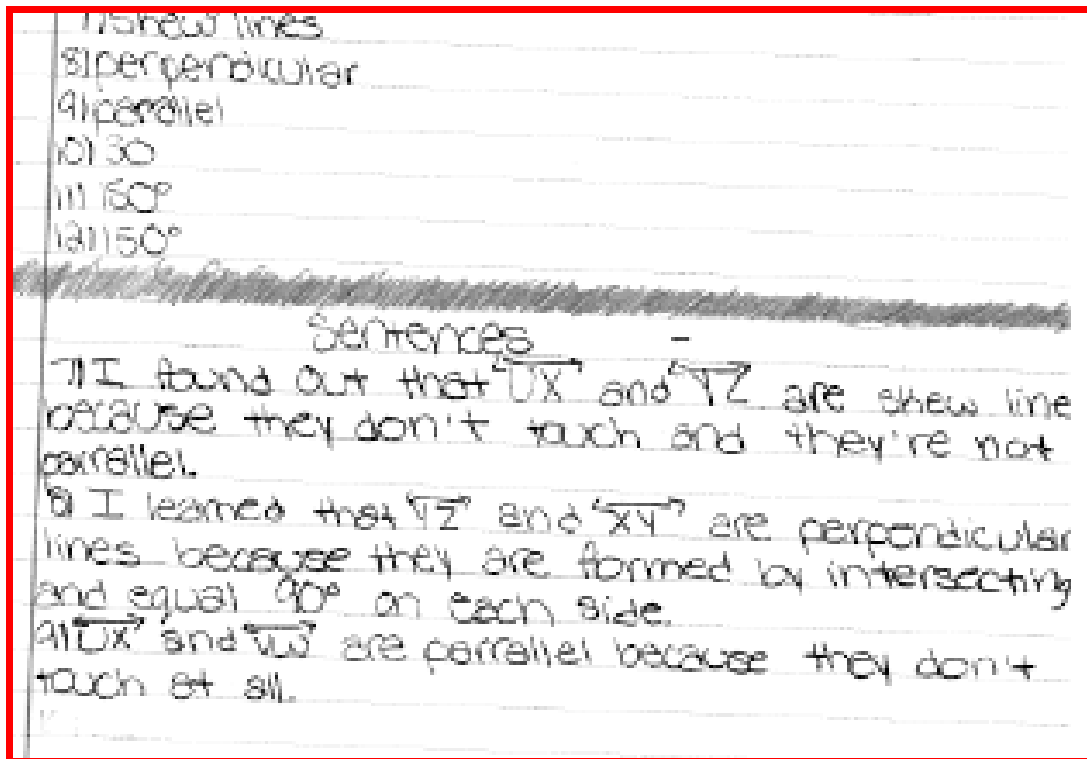 7) Skew lines
8) perpendicular
9) parallel
10) 30
11) 150°
12) 150°
Sentences
7) I found out that UX and YZ are skew line
because they don't touch and they're not
parrallel.
8) I learned that YZ and XY are perpendicular
lines because they are formed by intersecting
and equal 90° on each side.
9) UX and VW are parrallel because they don't
touch at all.